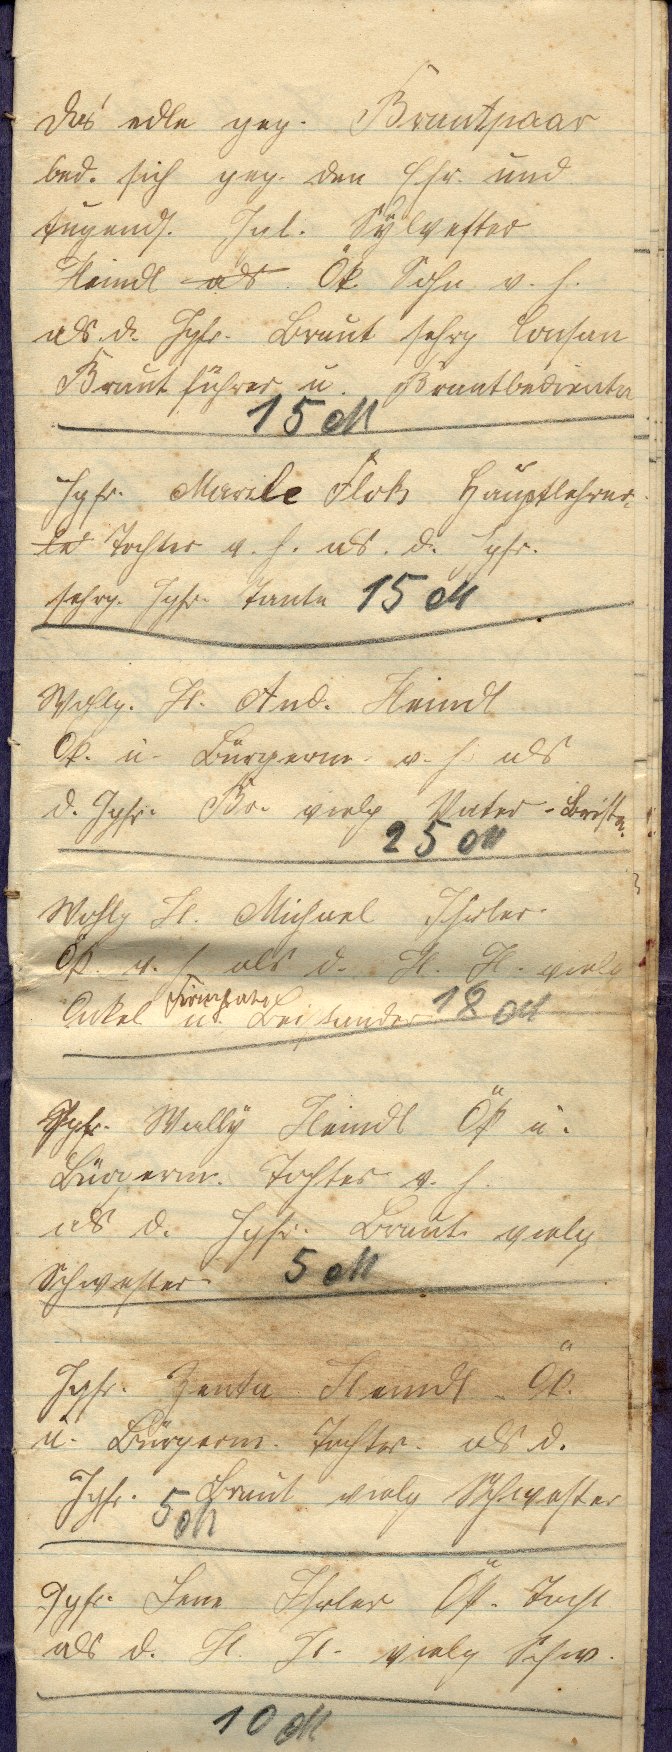 Das edle geg. Brautpaar
bed. sich geg. den Ehr. und
tugends. Jgl. Sylvester
Heindl als Ök. Sohn v. h.
als d. Jgfr. Braut sehrg
Brautführer u. Brautbediente
15 M
Jgfr. Marile Flok Hauptlehrer-
Tochter v. h. als d. Jgfr.
sehrg. Jgfr. Tante 15 M
Wohlg. H. And. Heindl
Ök. u. Bürgerm. v. h. als
d. Jgfr. Br. vielg Vater - Beista.
25 M
Wohlg H. Michael Ihrler
Ök. v. h. als d. H. H. vielg
Firmpate
Onkel u. Beistander 18 M
Jgfr. Wally Heindl Ök u.
Bürgerm. Tochter v. h.
als d. Jgfr. Braut vielg
Schwester 5 M
Jgfr. Zenta Heindl Ök.
u. Bürgerm. Tochter als d.
Jgfr. Braut vielg Schwester
5 M
Jgfr. Lene Ihrler Ök. Tocht
als d. H. H. vielg Schw.
10 M